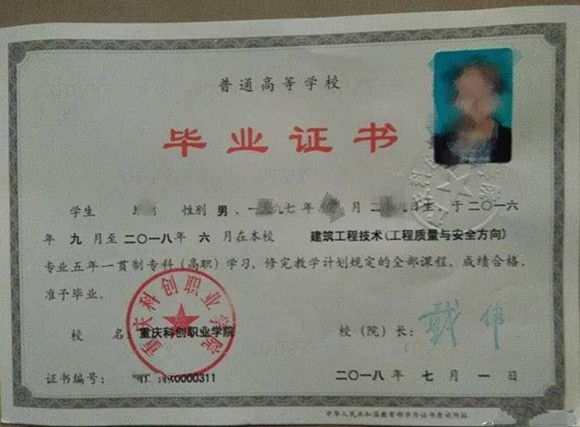 普通高等学校
毕业证书
学生 性别 男、一 七年 月二 生,于二〇一六
年 九 月至二〇一八年 六 月在本校 建筑工程技术(工程质量与安全方向)
专业五年一贯制专科(高职)学习,修完教学计划规定的全部课程,成绩合格,
准予毕业。
校 名: 重庆科创职业学院
校(院)长:
重庆科创职业学院
证书编号: 0000311
二〇一八 年 七 月 一 日
中华人民共和国教育部学历证书查询网址: